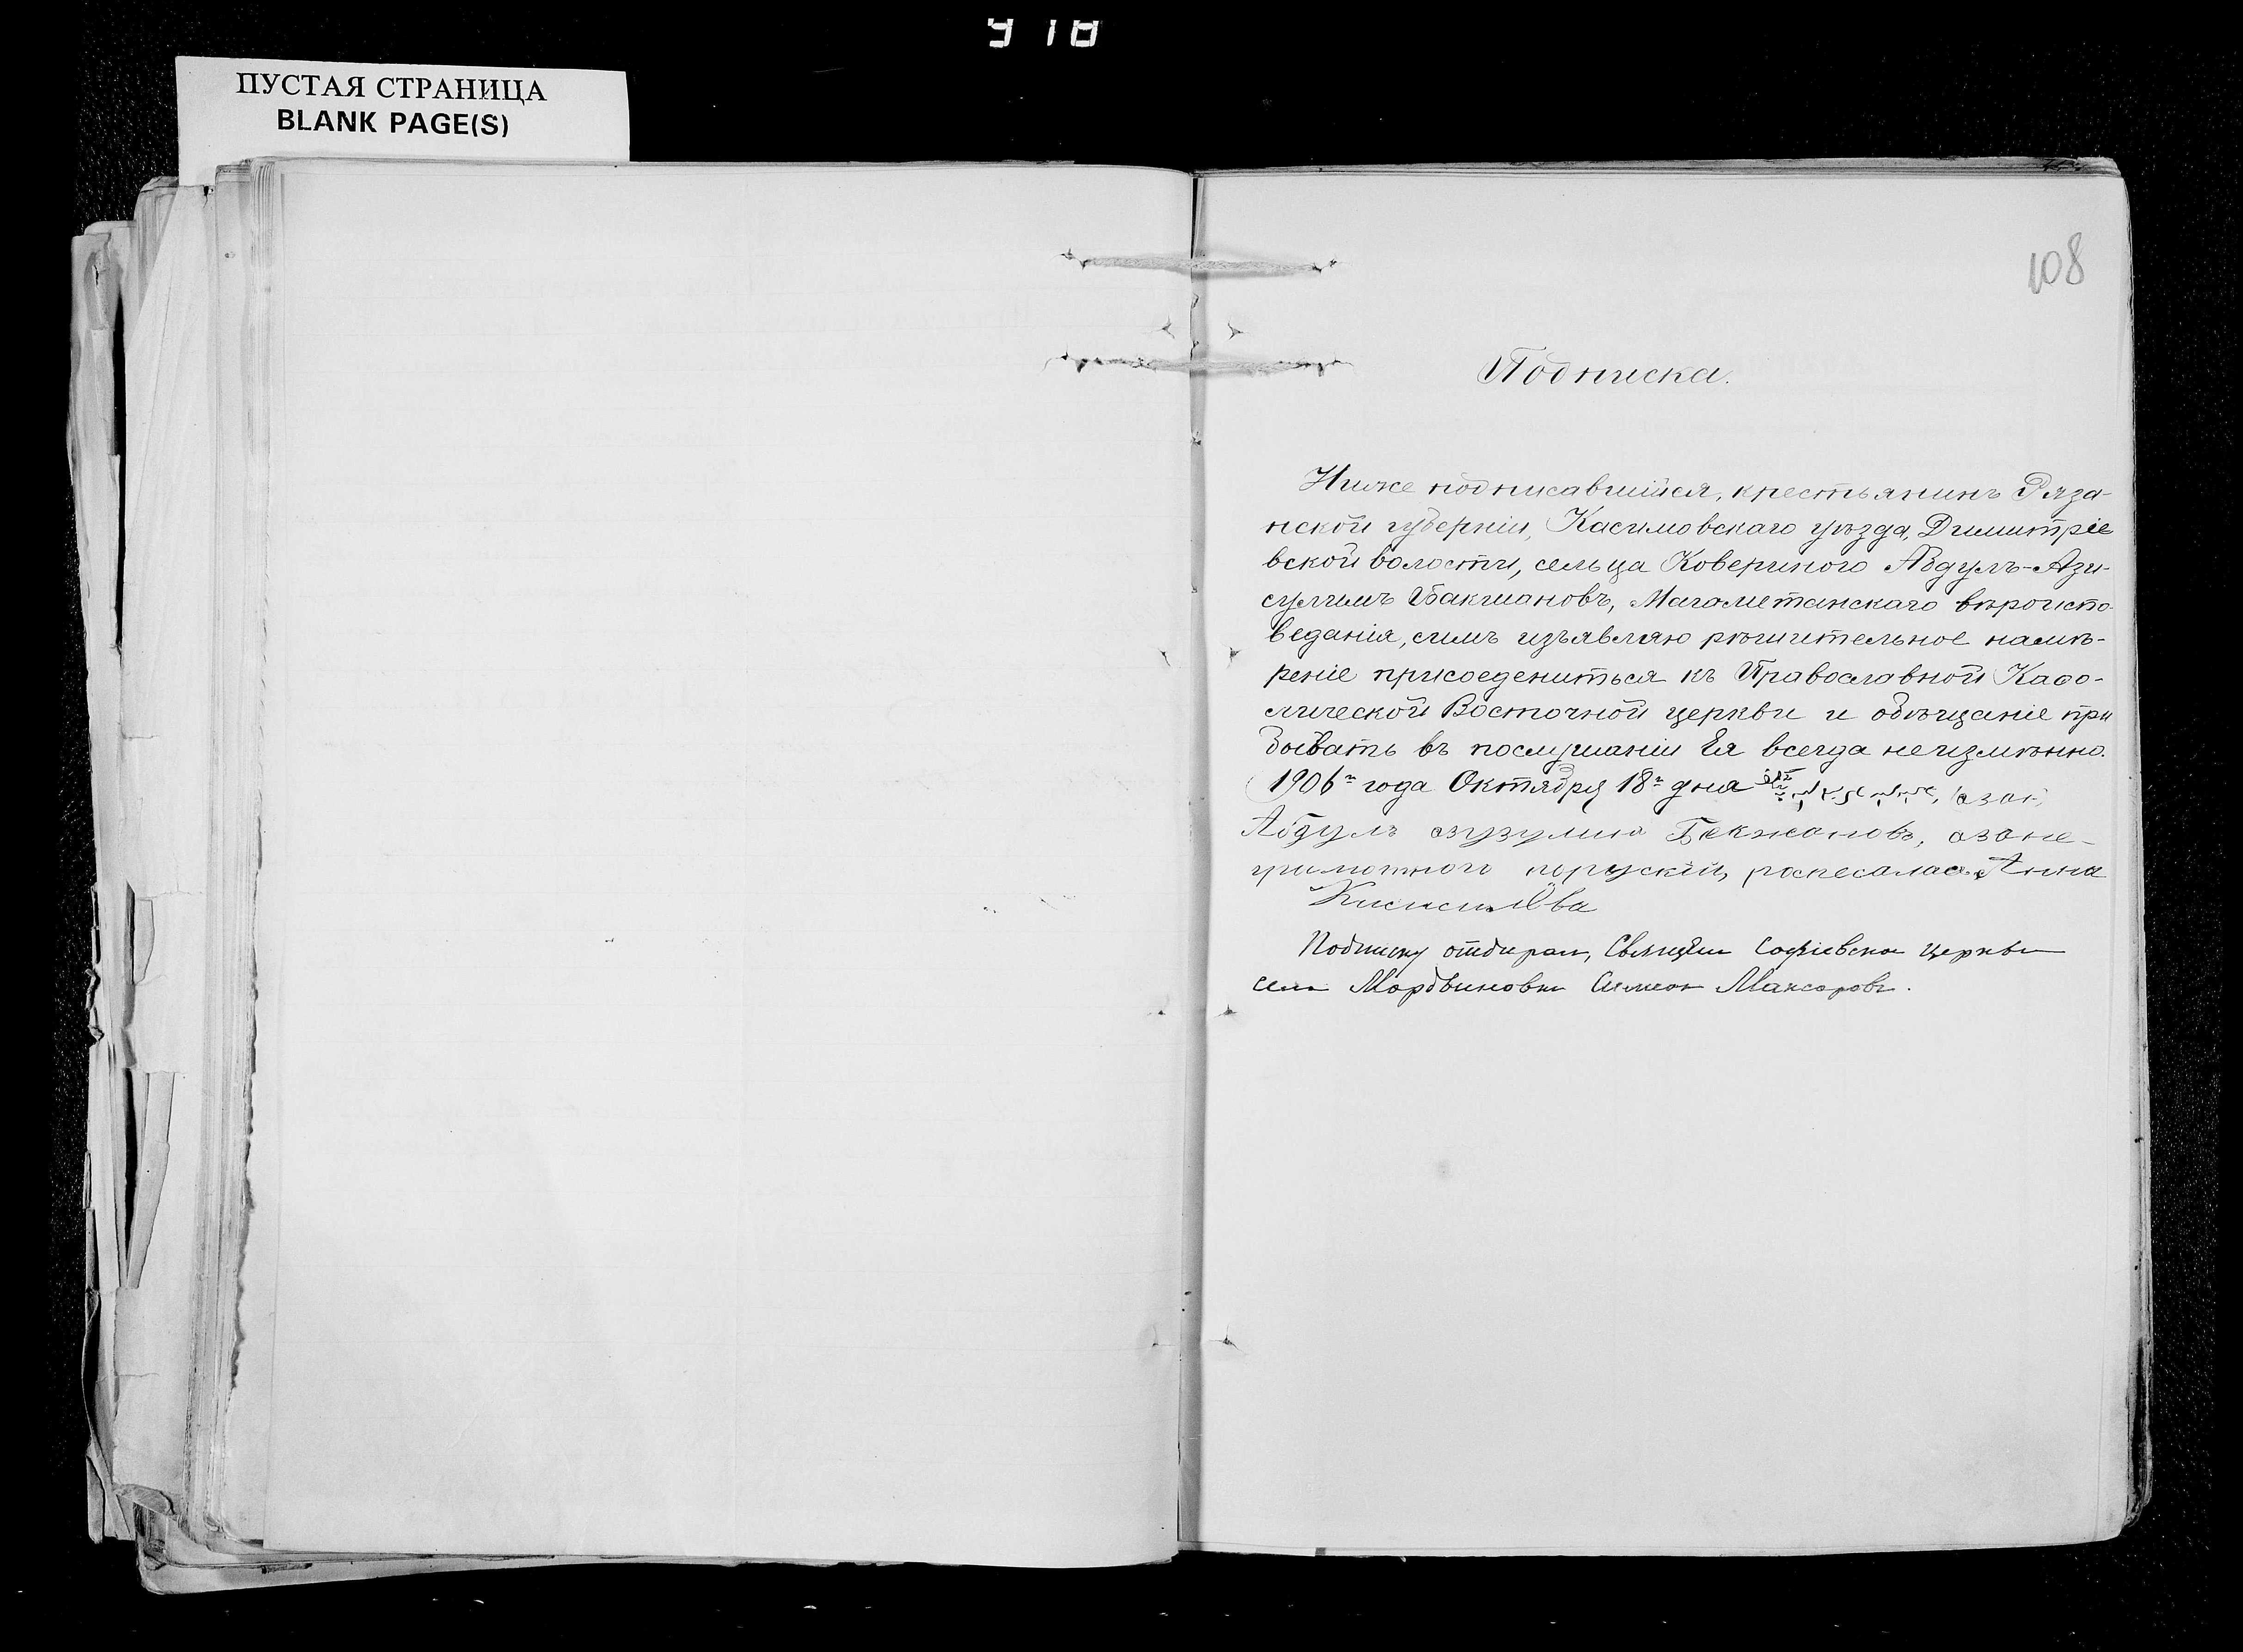 918
ПУСТАЯ СТРАНИЦА
BLANK PAGE(S)
108
Подписка.
Ниже подписавшійся, крестьянинъ Ряза-
нской губерніи, Касимовскаго уѣзда, Димитріе
вской волости, сельца Ковериного Абдулъ-Ази-
суллимъ Бакшановъ, Магометанскаго вѣроиспо-
веданія, симъ изъявляю рѣшительное намѣ-
реніе присоедениться къ Православной Каѳо-
лической Восточной церкви и обѣщаніе при
бывать въ послушаніи Ея всегда неизмѣнно.
1906 года Октября 18 дня
Абдулъ Бекжановъ, азане-
грамотного поруский, роспесалась Анна
Подписку отбирал, Священ Софіевской церкви
села Мордвиновки Симеон